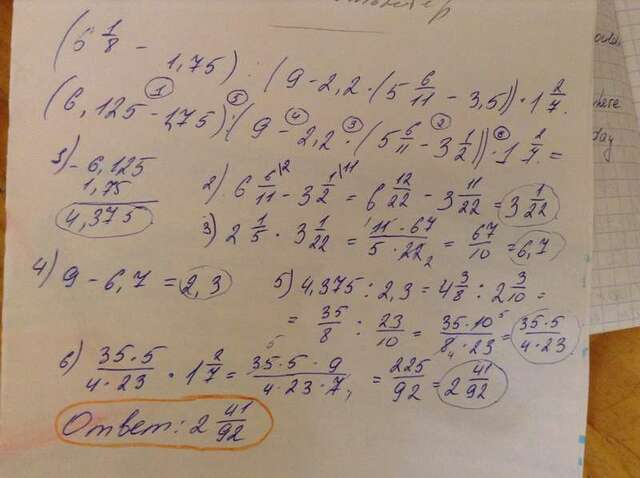 (6 1/8 - 1,75) : (9 - 2,2 · (5 6/11 - 3,5)) · 1 2/7.
(6,125 - 1,75) : (9 - 2,2 · (5 6/11 - 3 1/2)) · 1 2/7 =
1) - 6,125
1,75
4,375
2) 6 6/11 \2 - 3 1/2 \11 = 6 12/22 - 3 11/22 = 3 1/22
3) 2 1/5 · 3 1/22 = 11 · 67 / 5 · 22 2 = 67/10 = 6,7
4) 9 - 6,7 = 2,3
5) 4,375 : 2,3 = 4 3/8 : 2 3/10 =
= 35/8 : 23/10 = 35 · 10 5 / 8 4 · 23 = 35 · 5 / 4 · 23
6) 35 · 5 / 4 · 23 · 1 2/7 = 5 35 · 5 · 9 / 4 · 23 · 7 1 = 225/92 = 2 41/92
Ответ: 2 41/92